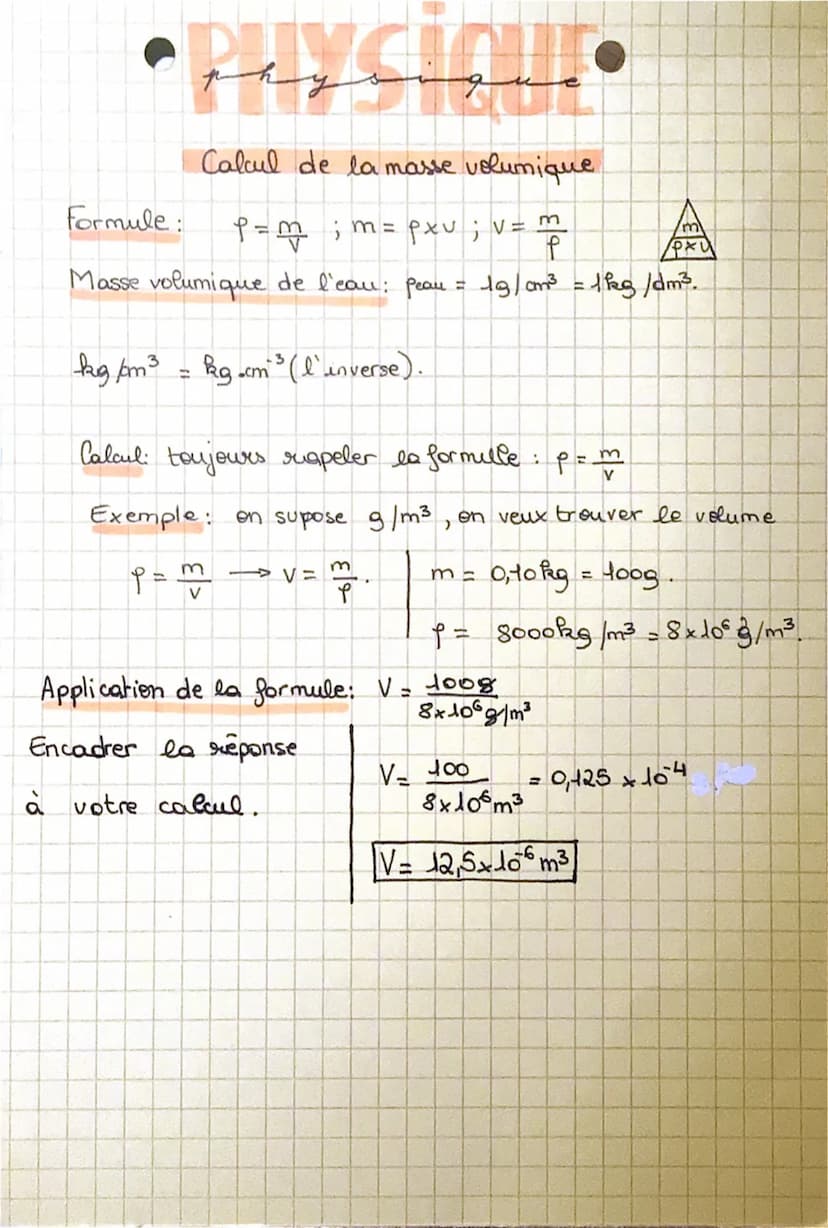 PHYSIQUE
physique
Calcul de la masse volumique
Formule : ρ = m/v ; m = ρxv ; v = m/ρ
m
ρxv
Masse volumique de l'eau : ρeau = 1g/cm³ = 1kg/dm³.
kg/m³ = kg.m⁻³ (l'inverse).
Calcul : toujours rapeler la formulle : ρ = m/v
Exemple : on supose g/m³, on veux trouver le volume
ρ = m/v → v = m/ρ.
m = 0,10kg = 100g.
ρ = 8000kg/m³ = 8x10⁶ g/m³.
Application de la formule : V = 100g / 8x10⁶g/m³
Encadrer la réponse
à votre calcul.
V = 100 / 8x10⁶m³ = 0,125 x 10⁻⁴
V = 12,5x10⁻⁶ m³